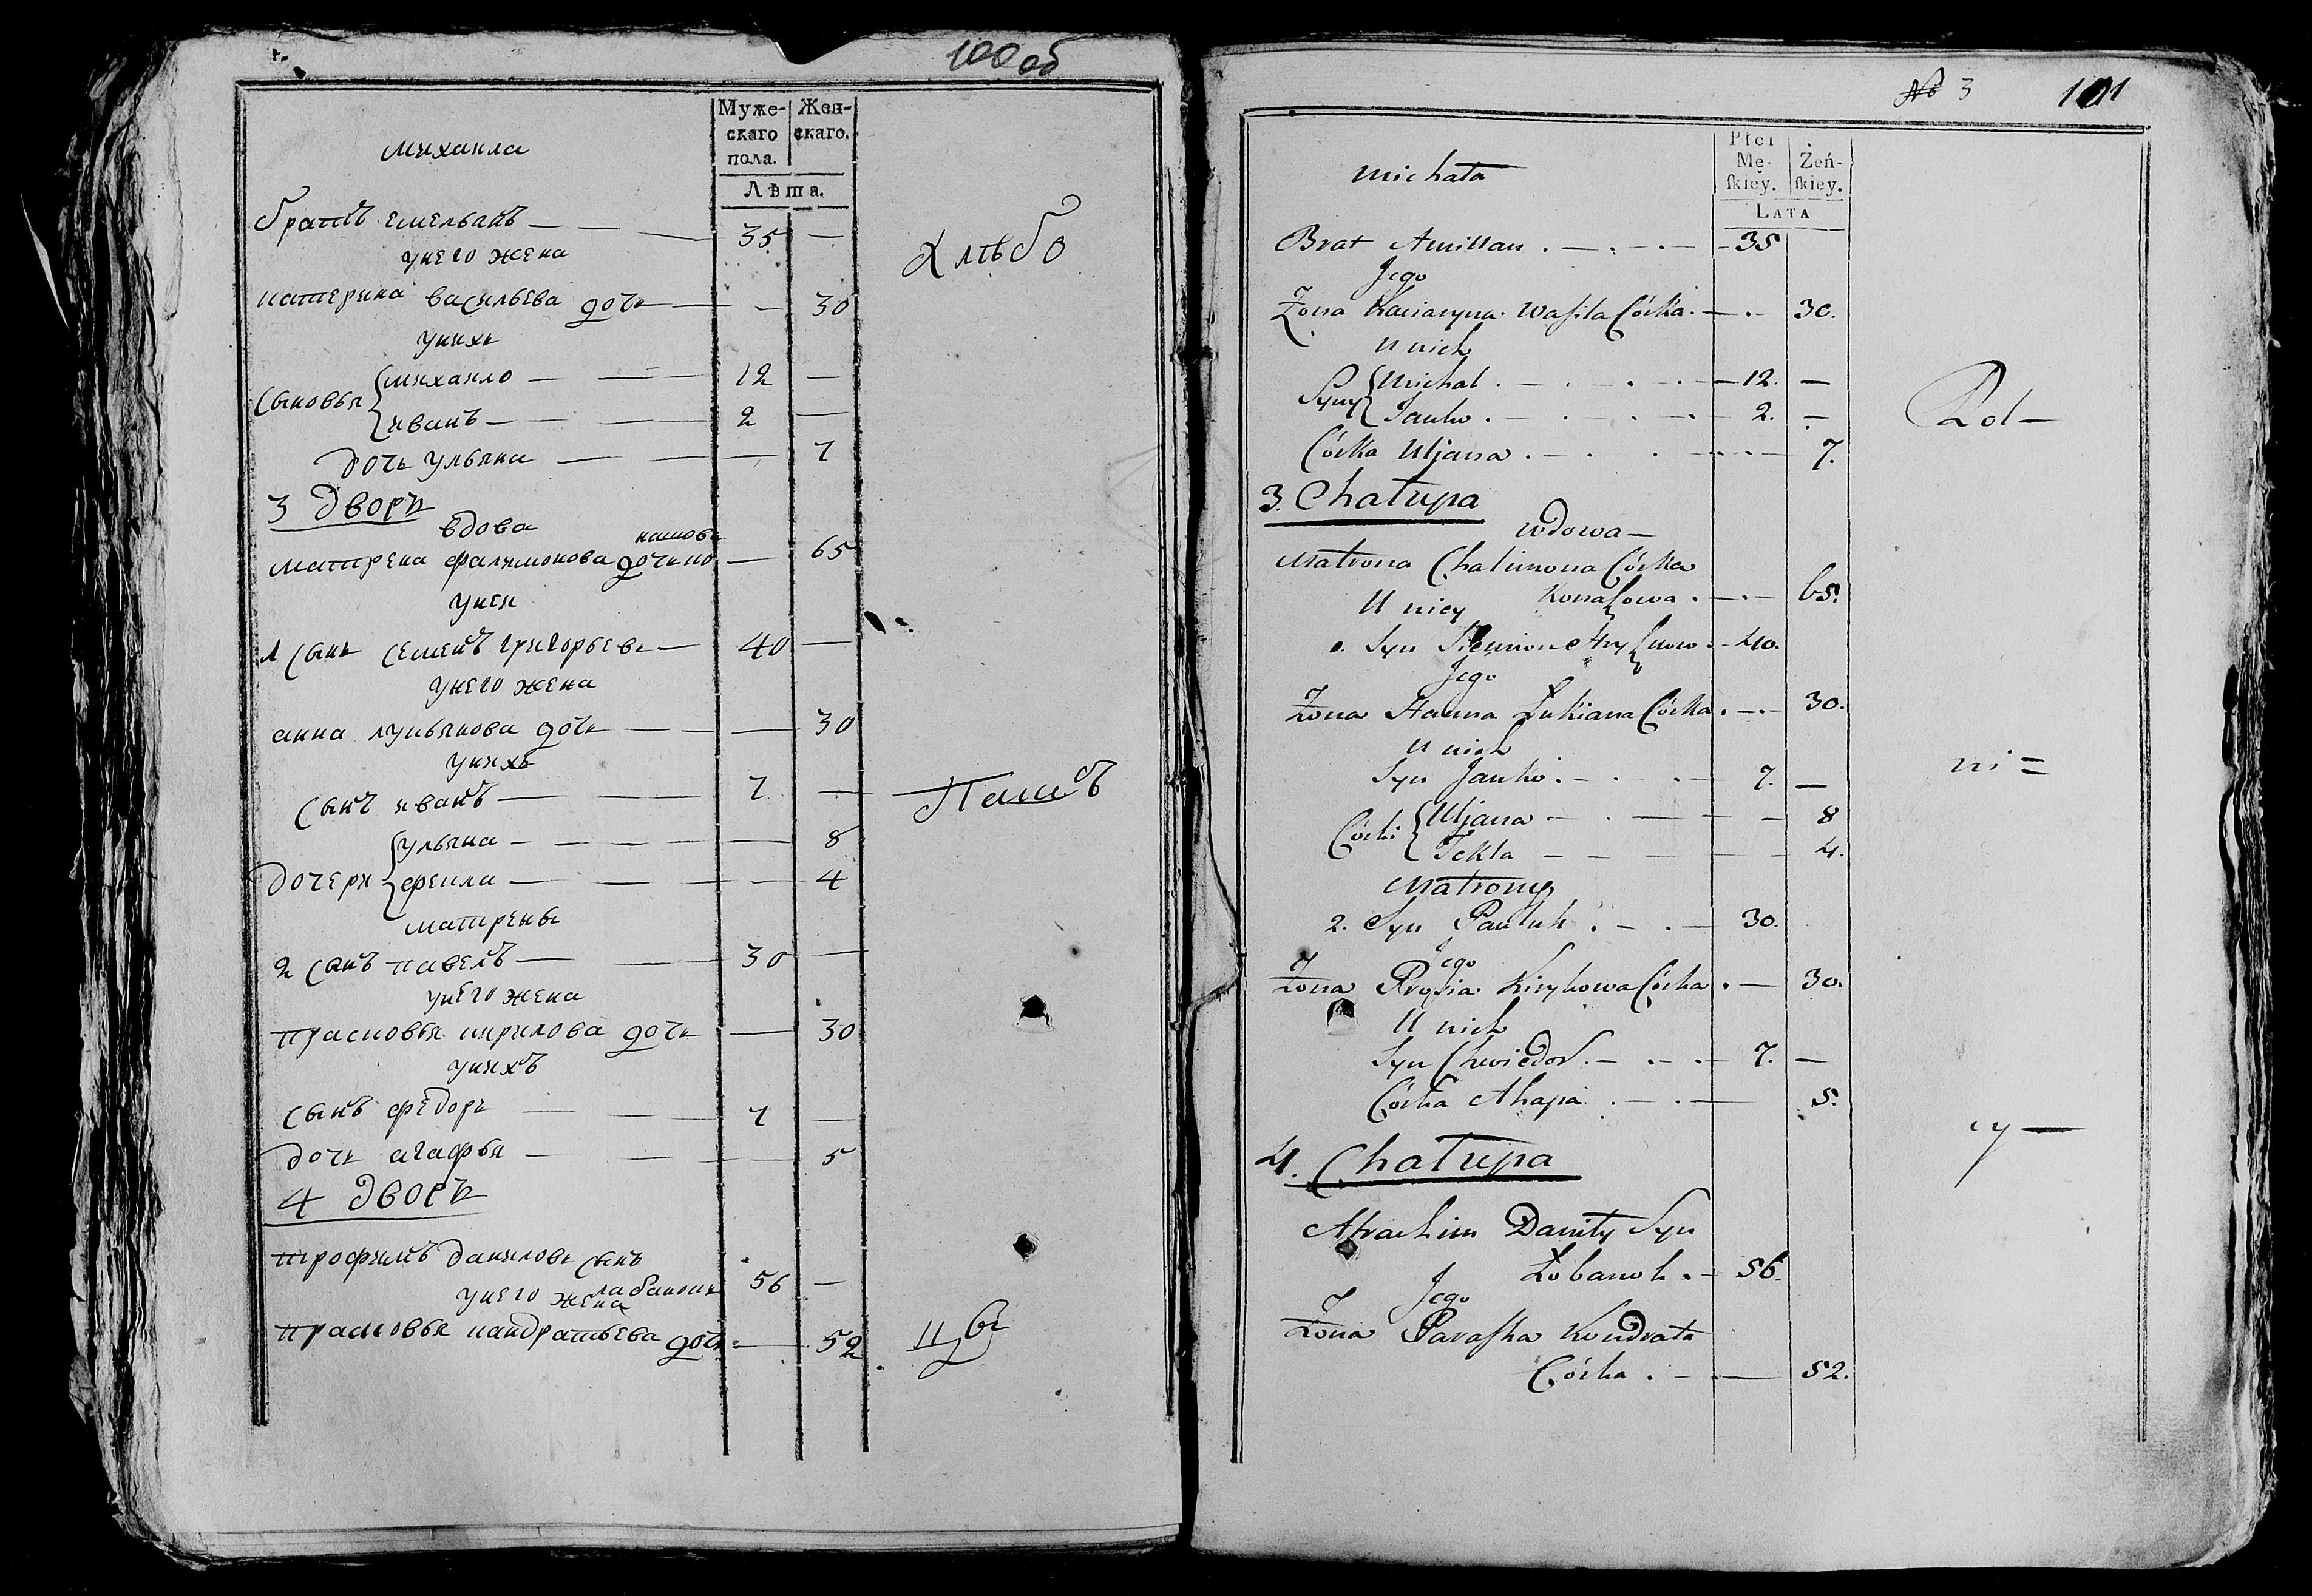 100 об
Муже-
скаго
пола.
Жен-
скаго.
Лѣта.
михаила
братъ емельянъ — 35 —
унего жена
катерина васильева дочь — 30
унихъ
сыновья
михаило — 12 —
иванъ — 2 —
дочь ульяна — 7
3 дворъ
вдова
матрена филимонова дочь — 65
унея
1 сынъ семенъ григорьевъ — 40 —
унего жена
анна лукьянова дочь — 30
унихъ
сынъ иванъ — 7 —
дочери
ульяна — 8
фекла — 4
матрены
2 сынъ павелъ — 30 —
унего жена
прасковья кирилова дочь — 30
унихъ
сынъ федоръ — 7 —
дочь агафья — 5
4 дворъ
трофимъ даниловъ сынъ
лабанокъ 56 —
унего жена
прасковья кандратьева дочь — 52
Хлѣбо
Пашъ
№ 3 101
Płci
Mę-
ſkiey.
Żeń-
ſkiey.
LATA
Michała
Brat Amillan . — . — . — 35
Jego
Żona Kaciaryna Waſila Córka . — . — 30.
U nich
Syny
Michał . — . — 12. —
Janko . — . — 2. —
Córka Uljana . — . — 7.
3. Chałupa
wdowa —
Matrona Chalimona Córka
U niey
65.
Syn Siemion — 40.
Jego
Żona Hanna Łukiana Córka . — . — 30.
U nich
Syn Janko . — . — 7. —
Córki
Uljana — . — 8
Tekla — — 4.
Matrony
2. Syn Pauluk . — . — 30.
Jego
Żona Prosia Kirykowa Córka . — 30.
U nich
Syn Chwiedor . — . — 7. —
Córka Ahapa . — . — 5.
4. Chałupa
Atrachim Daniły Syn
Łobanok . — 56.
Jego
Żona Paraſka Kondrata
Córka . — . — 52.
Rol —
ni =
cy —